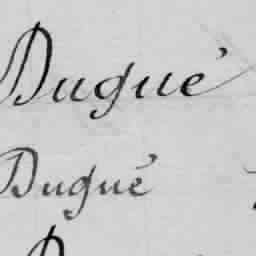 Dugué
Dugué